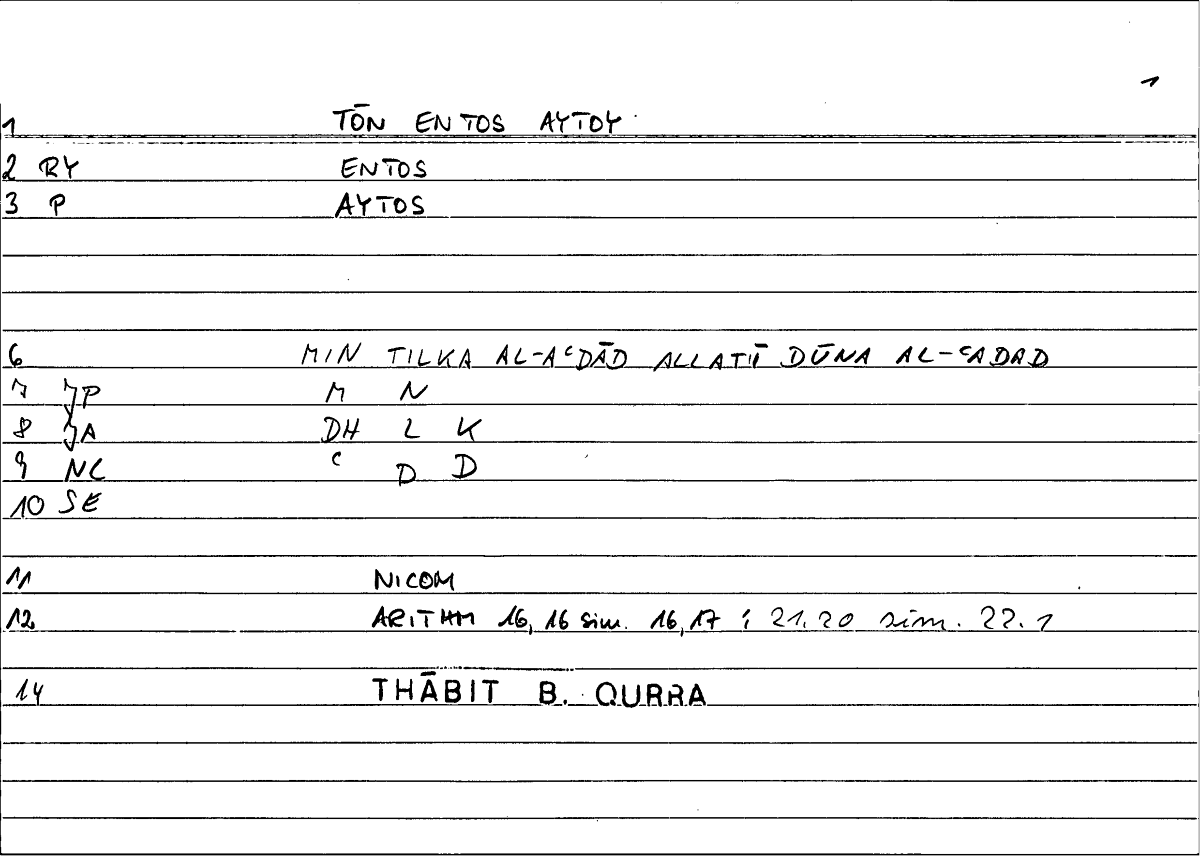 1
1 TŌN ENTOS AYTOY
2 RY ENTOS
3 P AYTOS
6 MIN TILKA AL-AʿDĀD ALLATĪ DŪNA AL-ʿADAD
7 JP M N
8 JA DH L K
9 NC ʿ D D
10 SE
11 NICOM
12 ARITHM 16, 16 sim. 16, 17 ; 21.20 sim. 22.1
14 THĀBIT B. QURRA